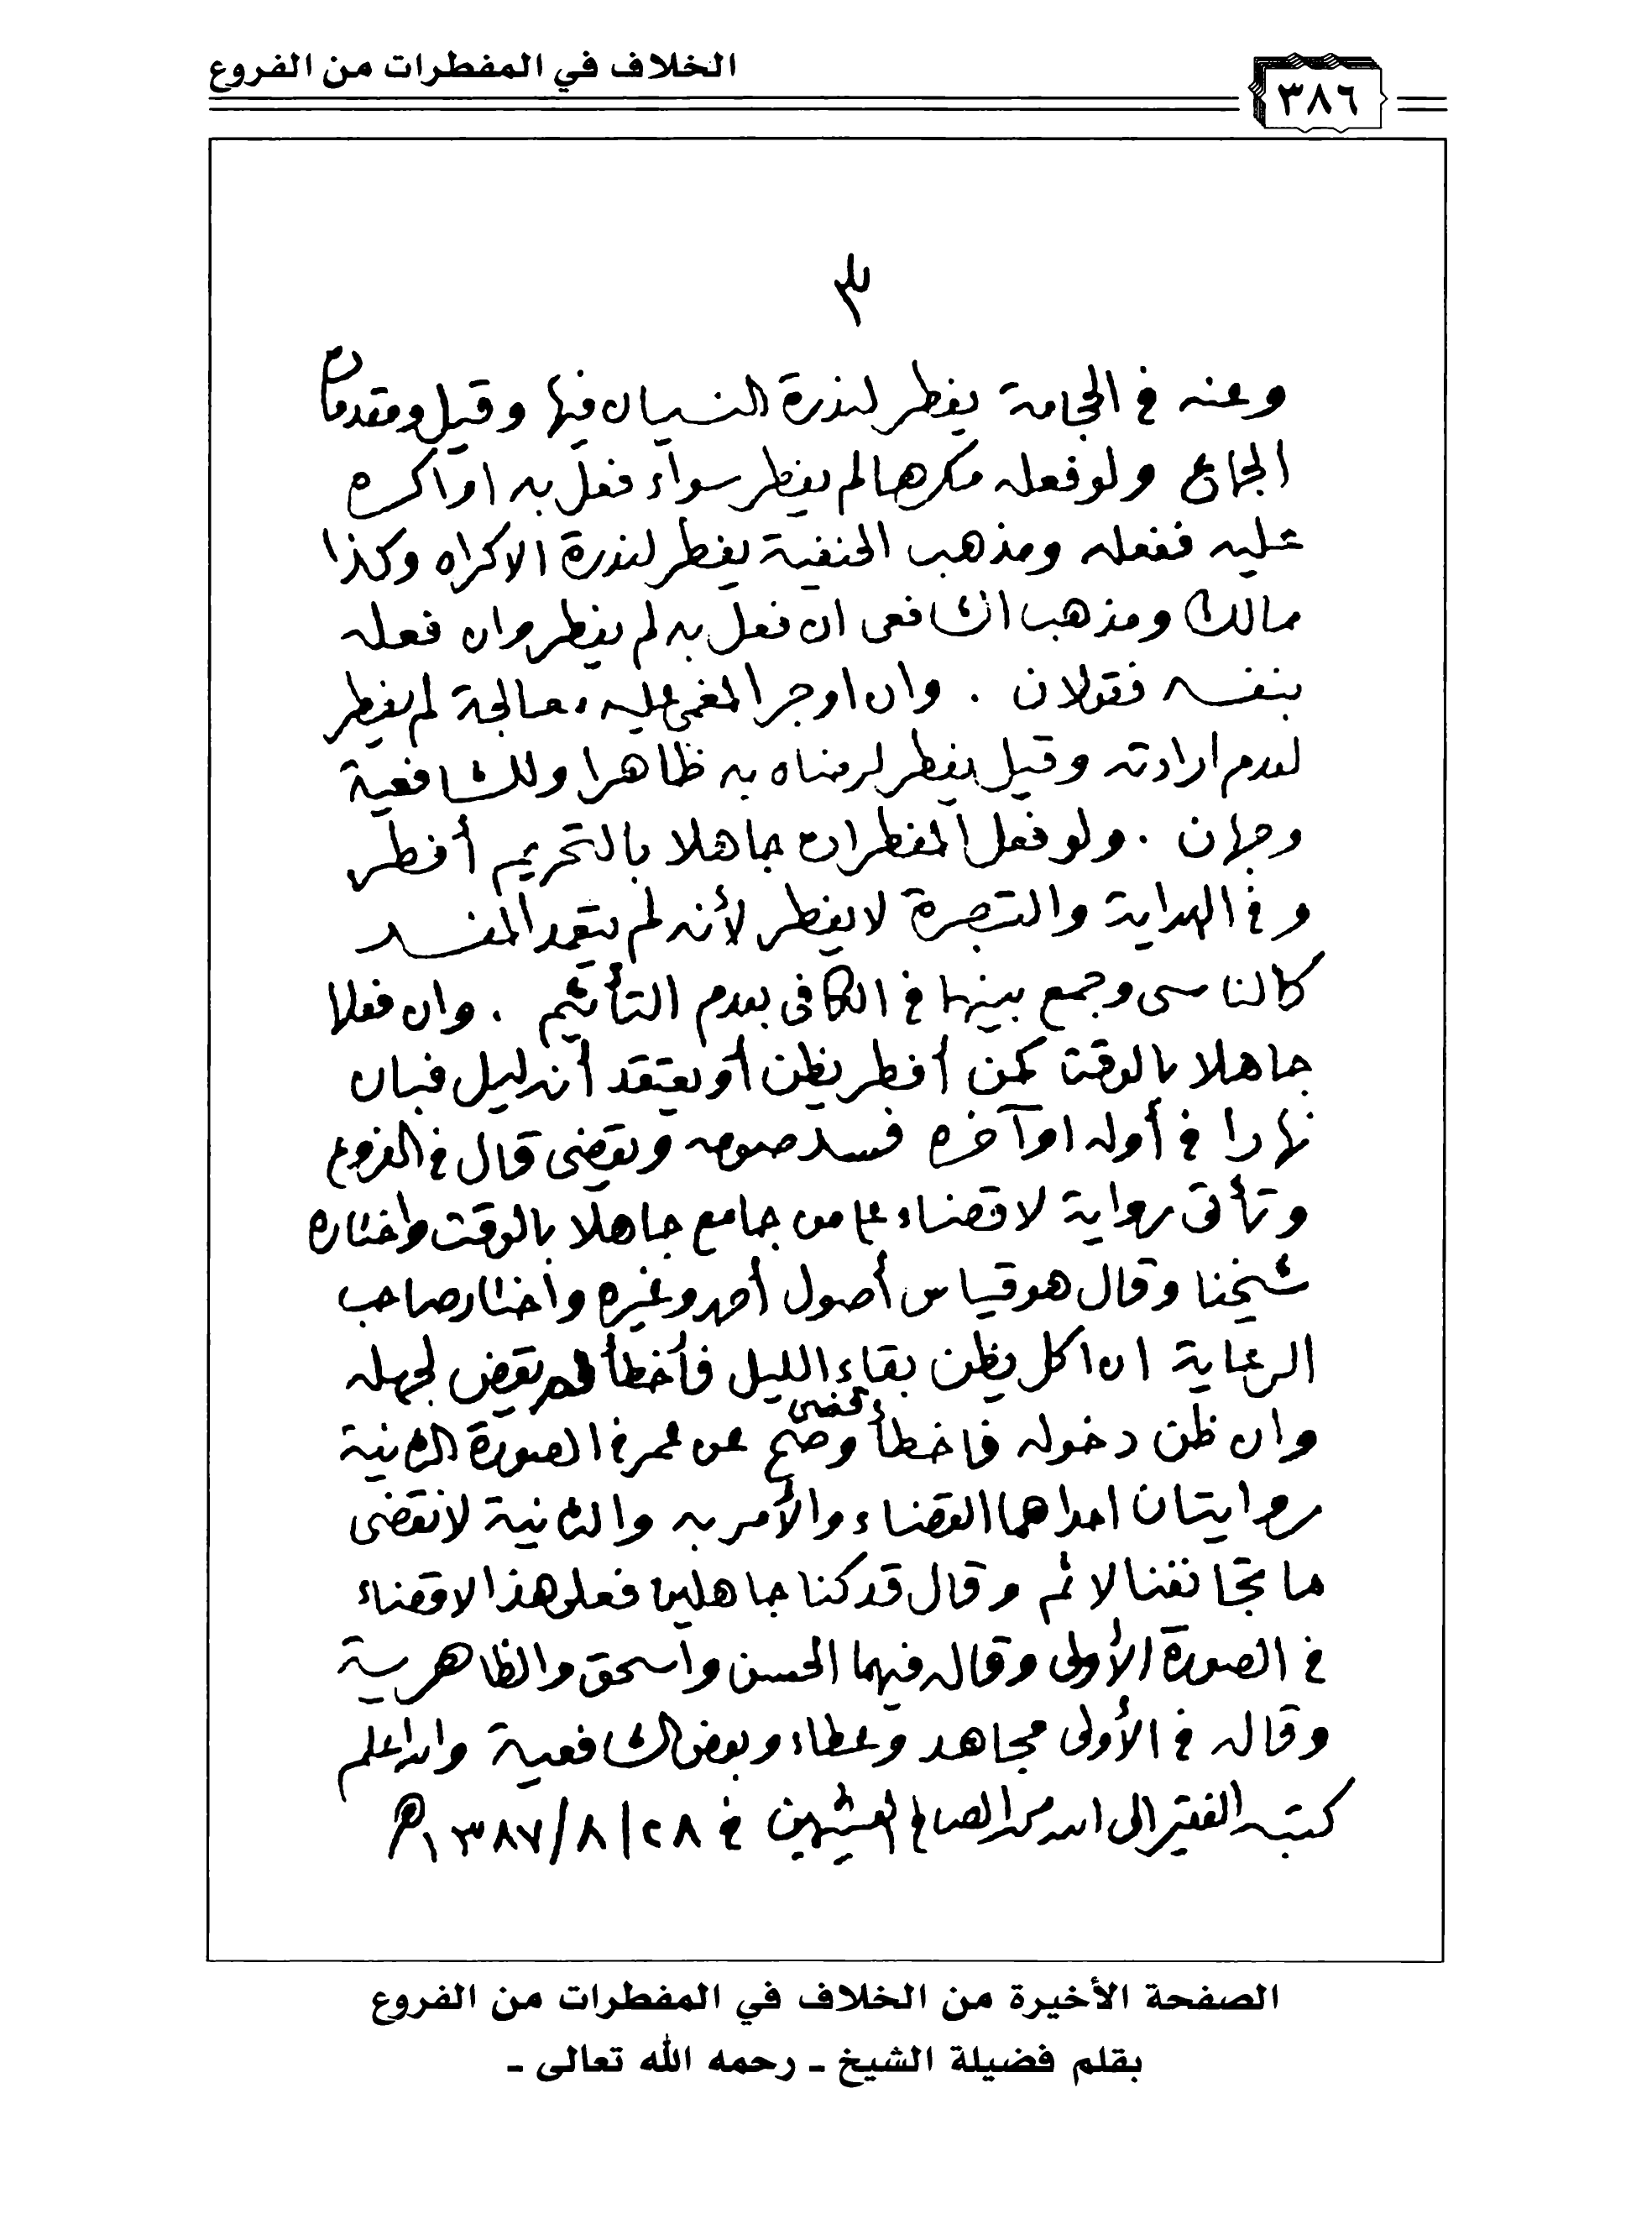 الخلاف في المفطرات من الفروع
٣٨٦
٣
وعنه في الحجامة يفطر لندرة النسيان فيها وقيل ومقدمات
الجماع ولو فعله مكرها لم يفطر سواء فعل به او اكره
عليه ففعله ومذهب الحنفية يفطر لندرة الاكراه وكذا
مالك ومذهب الشافعي ان فعل به لم يفطر وان فعله
بنفسه فقولان . وان اوجر المغمى عليه معالجة لم يفطر
لعدم ارادته وقيل يفطر لرضاه به ظاهرا وللشافعية
وجهان . ولو فعل المفطرات جاهلا بالتحريم أفطر
وفي الهداية والتبصرة لا يفطر لأنه لم يتعمد المفسد
كالناسي وجمع بينهما في الكافي بعدم التأثيم . وان فعلها
جاهلا بالوقت كمن أفطر يظن أو يعتقد أنه ليل فبان
نهارا في أوله او آخره فسد صومه ويقضي قال في الفروع
وتأتي رواية لا قضاء على من جامع جاهلا بالوقت واختاره
شيخنا وقال هو قياس أصول أحمد وغيره واختار صاحب
الرعاية ان اكل يظن بقاء الليل فأخطأ لم يقض لجهله
وان ظن دخوله فاخطأ قضى وصح عن عمر في الصورة الثانية
روايتان احداهما القضاء والأمر به والثانية لا نقضي
ما تجانفنا لاثم وقال قد كنا جاهلين فعلى هذا لا قضاء
في الصورة الأولى وقاله فيهما الحسن واسحق والظاهرية
وقاله في الأولى مجاهد وعطاء وبعض الشافعية والله اعلم
كتبه الفقير الى الله محمد الصالح العثيمين في ٢٨/٨/١٣٨٧ هـ
الصفحة الأخيرة من الخلاف في المفطرات من الفروع
بقلم فضيلة الشيخ ـ رحمه الله تعالى ـ